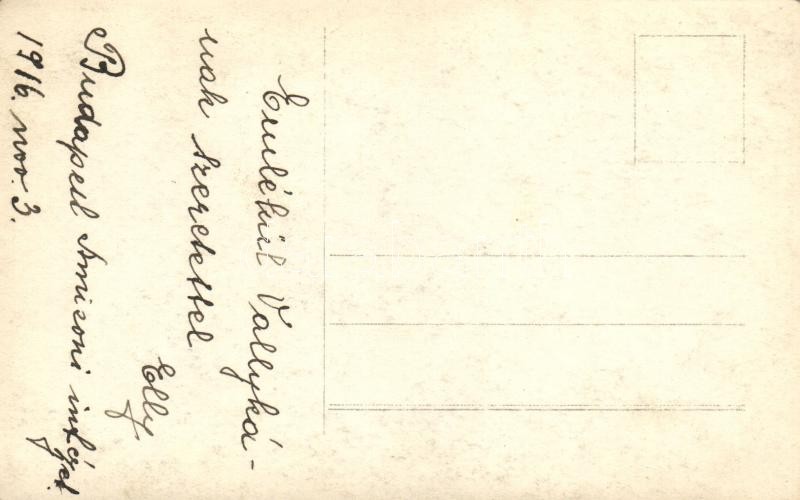 Emlékül Vallyká-
nak szeretettel
Elly
Budapest Amizoni intézet.
1916. nov. 3.